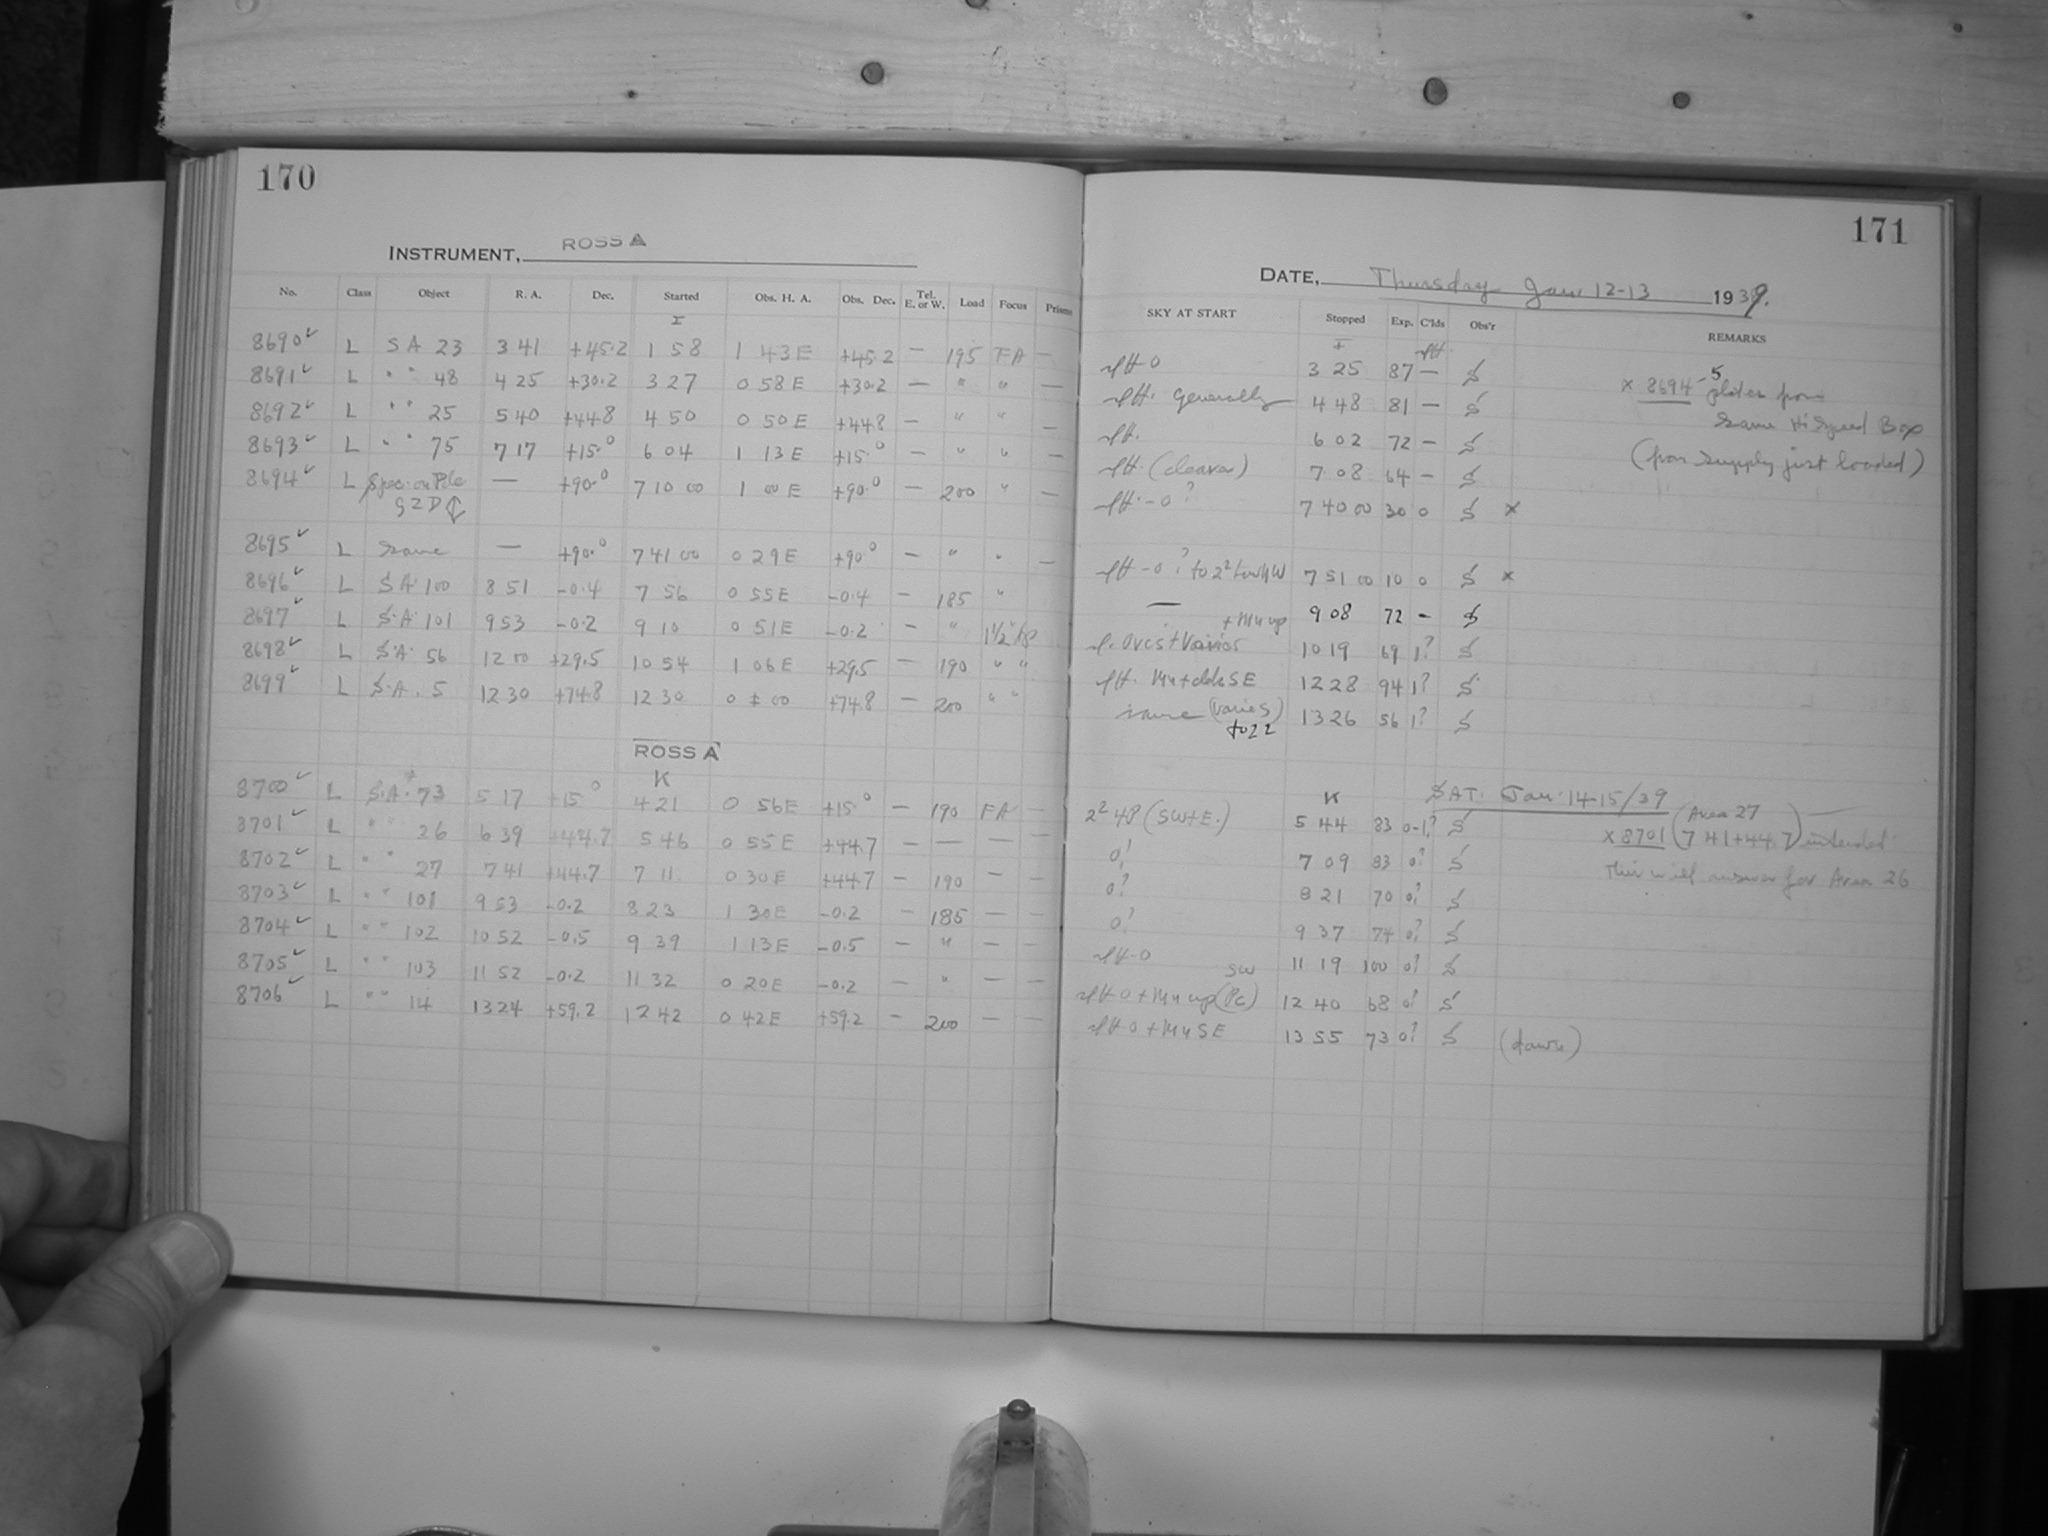 170
INSTRUMENT, ROSS A
No. Class Object R. A. Dec. Started Obs. H. A. Obs. Dec. Tel. E. or W. Load Focus Prisms
I
8690 ✓ L S A 23 3 41 +45.2 1 58 1 43 E +45.2 — 195 FA —
8691 ✓ L " " 48 4 25 +30.2 3 27 0 58 E +30.2 — " " —
8692 ✓ L " " 25 5 40 +44.8 4 50 0 50 E +44.8 — " " —
8693 ✓ L " " 75 7 17 +15.0 6 04 1 13 E +15.0 — " " —
8694 ✓ L Spec. on Pole — +90.0 7 10 00 1 00 E +90.0 — 200 " —
8695 ✓ L Same — +90.0 7 41 00 0 29 E +90.0 — " " —
8696 ✓ L S A 100 8 51 -0.4 7 56 0 55 E -0.4 — 185 "
8697 ✓ L S.A. 101 9 53 -0.2 9 10 0 51 E -0.2 — "
8698 ✓ L S.A. 56 12 00 +29.5 10 54 1 06 E +29.5 — 190 " "
8699 ✓ L S.A. 5 12 30 +74.8 12 30 0 ± 00 +74.8 — 200 " "
ROSS A
K
8700 ✓ L S.A. 73 5 17 +15.0 4 21 0 56 E +15.0 — 190 FA —
8701 ✓ L " " 26 6 39 +44.7 5 46 0 55 E +44.7 — — — —
8702 ✓ L " " 27 7 41 +44.7 7 11 0 30 E +44.7 — 190 — —
8703 ✓ L " " 101 9 53 -0.2 8 23 1 30 E -0.2 — 185 — —
8704 ✓ L " " 102 10 52 -0.5 9 39 1 13 E -0.5 — " — —
8705 ✓ L " " 103 11 52 -0.2 11 32 0 20 E -0.2 — " — —
8706 ✓ L " " 14 13 24 +59.2 12 42 0 42 E +59.2 — 200 — —
171
DATE, Thursday Jan. 12-13 1939.
SKY AT START Stopped Exp. C'lds Obs'r REMARKS
I
3 25 87 — S
generally 4 48 81 — S
6 02 72 — S
(clearer) 7 08 64 — S
7 40 00 30 0 S x
7 51 00 10 0 S x
— 9 08 72 — S
10 19 69 1? S
12 28 94 1? S
same (varies) 13 26 56 1? S
to 22
x 8694-5 plates from
same Hi Speed Box
(from supply just loaded)
K SAT. Jan. 14-15/39
(SW+E.) 5 44 83 0-1? S
0? 7 09 83 0? S
0? 8 21 70 0? S
0? 9 37 74 0? S
11 19 100 0? S
12 40 68 0? S
13 55 73 0? S (dawn)
(Area 27
x 8701 (7 41 +44.7) intended
This will answer for Area 26